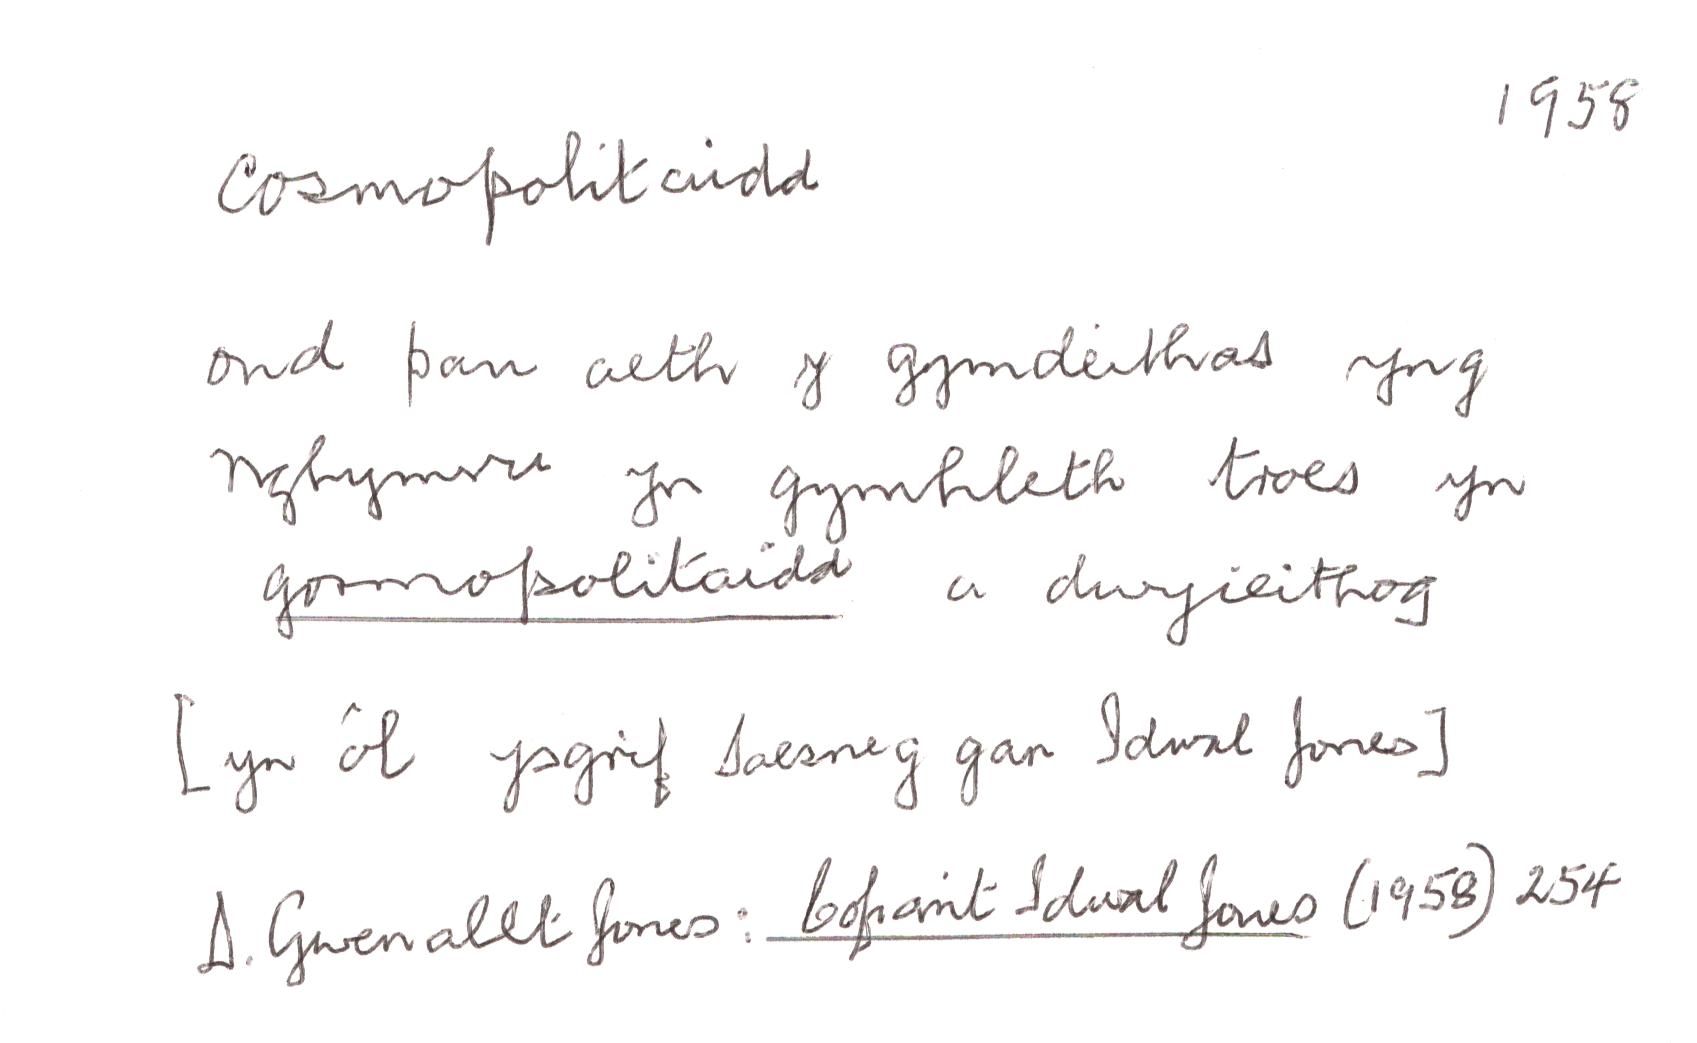 1958
Cosmopolitaidd
ond pan aeth y gymdeithas yng
Nghymru yn gymhleth troes yn
gosmopolitaidd a dwyieithog
[yn ôl ysgrif Saesneg gan Idwal Jones]
D. Gwenallt Jones: Cofiant Idwal Jones (1958) 254